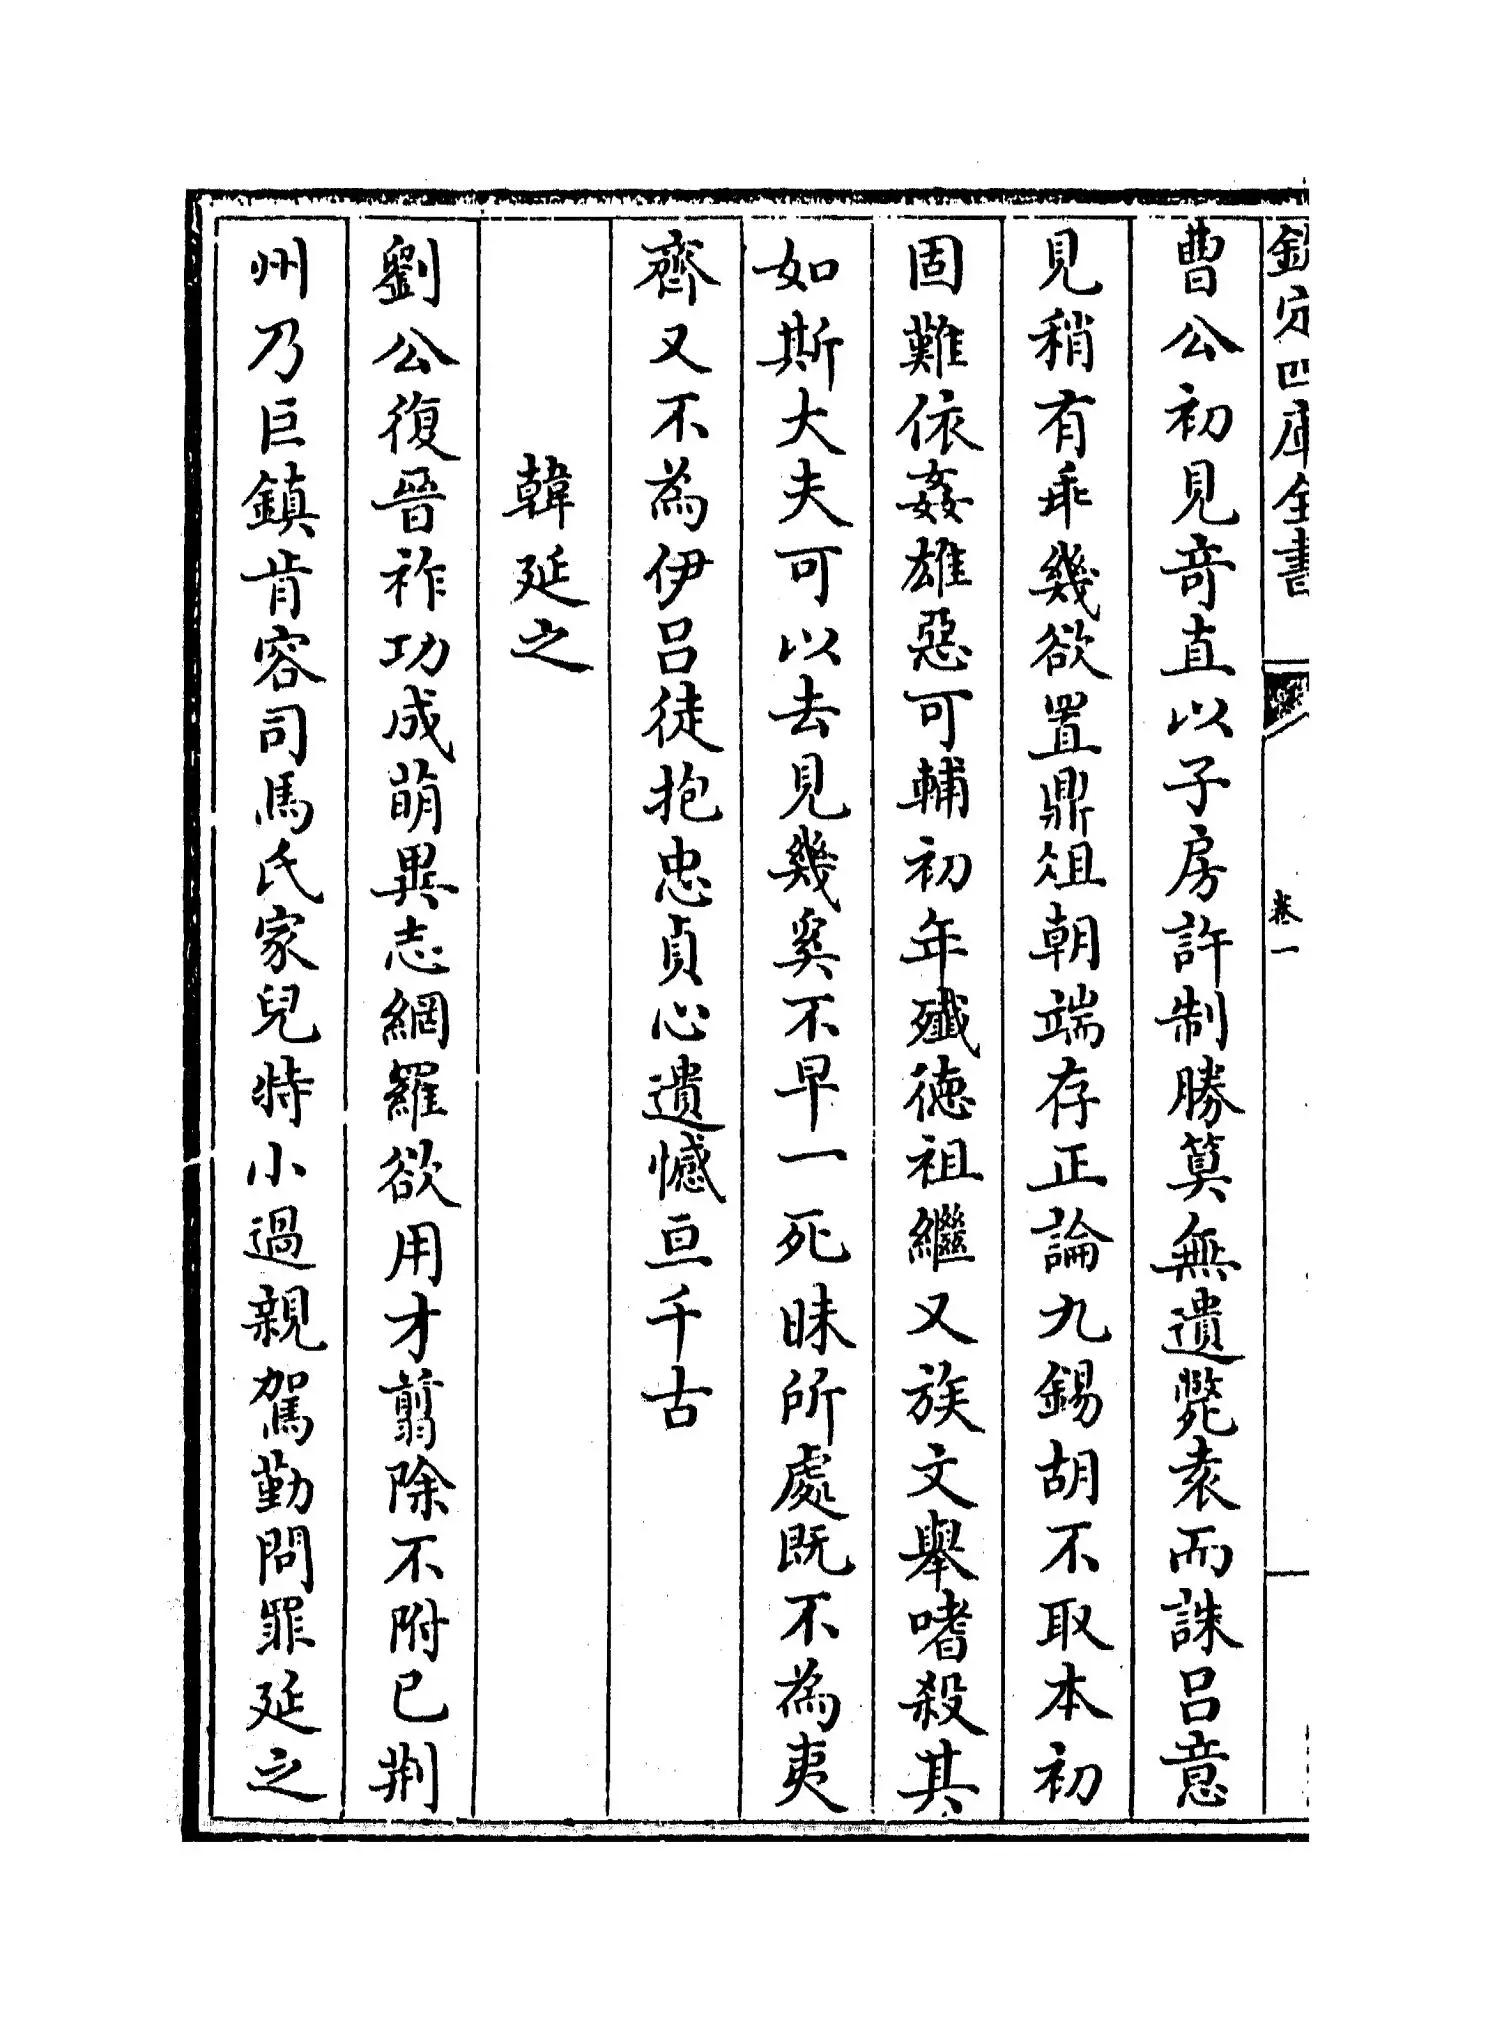 欽定四庫全書
卷一
曹公初見竒直以子房許制勝筭無遺斃袁而誅吕意
見稍有乖幾欲置鼎俎朝端存正論九錫胡不取本初
固難依姦雄惡可輔初年殲徳祖繼又族文舉嗜殺其
如斯大夫可以去見幾奚不早一死昧所處既不為夷
齊又不為伊吕徒抱忠貞心遺憾亘千古
韓延之
劉公復晉祚功成萌異志網羅欲用才翦除不附已荆
州乃巨鎮肯容司馬氏家兒特小過親駕勤問罪延之